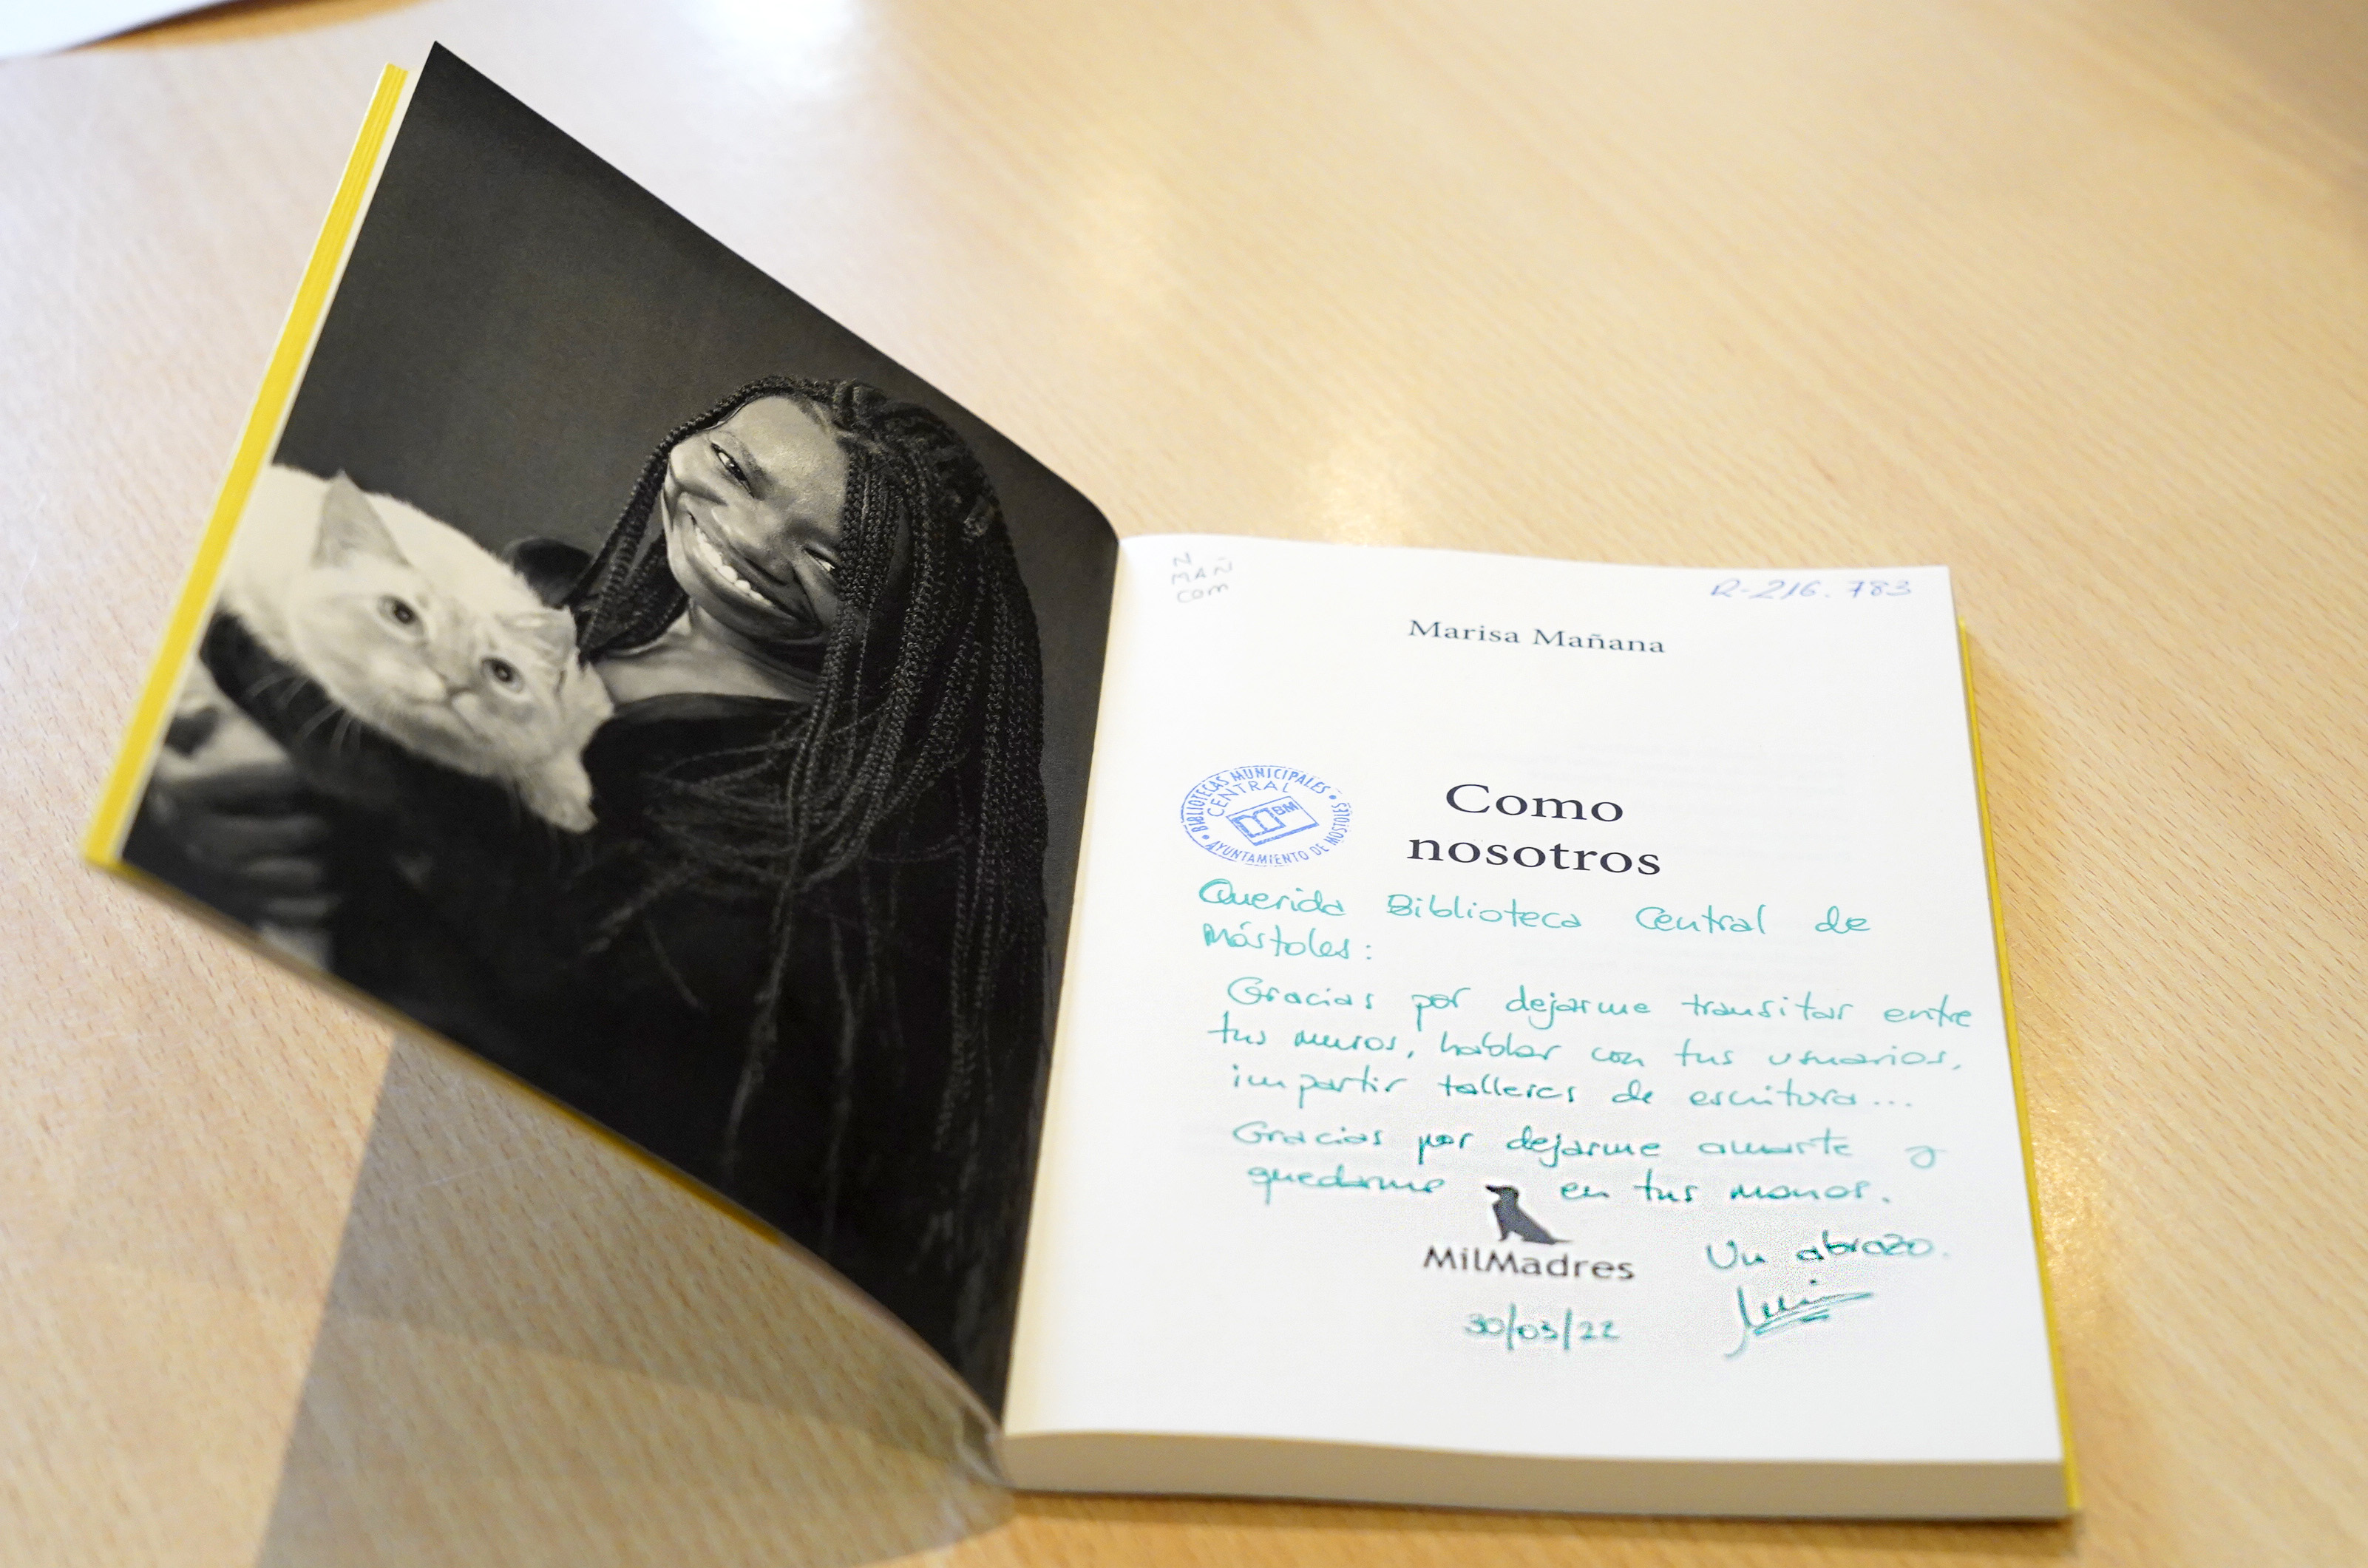 N
MAÑ
com
R-216.783
Marisa Mañana
BIBLIOTECAS MUNICIPALES
CENTRAL
BM
AYUNTAMIENTO DE MOSTOLES
Como
nosotros
Querida Biblioteca Central de
Móstoles:
Gracias por dejarme transitar entre
tus muros, hablar con tus usuarios,
impartir talleres de escritura...
Gracias por dejarme amarte y
quedarme en tus manos.
MilMadres
Un abrazo.
30/03/22